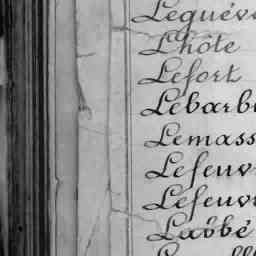 Leguév
L'hôte
Lefort
Lebarb
Lemass
Lefeuv
Lefeuv
Labbé